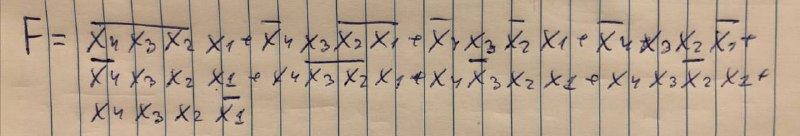 F = x̅₄̅ ̅x̅₃̅ ̅x̅₂̅ x₁ + x̅₄ x₃ x̅₂̅ ̅x̅₁̅ + x̅₄ x₃ x̅₂ x₁ + x̅₄ x₃ x₂ x̅₁ +
x̅₄ x₃ x₂ x₁ + x₄ x̅₃̅ ̅x̅₂̅ x₁ + x₄ x̅₃ x₂ x₁ + x₄ x₃ x̅₂ x₁ +
x₄ x₃ x₂ x̅₁